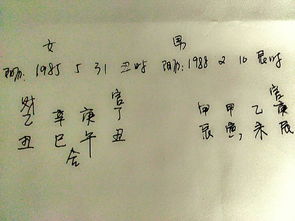 女 男
阳历:1985 5 31 丑时 阴历:1988 2 10 辰时
财 官 官
乙 辛 庚 丁 甲 甲 乙 庚
丑 巳 午 丑 辰 寅 未 辰
合